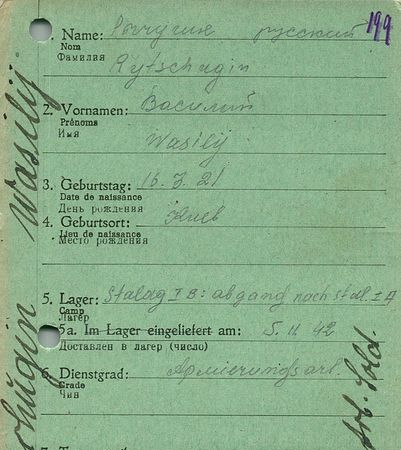 199
1. Name: русский
Nom
Фамилия
Rytschagin
2. Vornamen: Василий
Prénoms
Имя
Wasilij
3. Geburtstag: 16.3.21
Date de naissance
День рождения
4. Geburtsort: Киев
Lieu de naissance
Место рождения
5. Lager: Stalag I B: abgang nach Stal. I A
Camp
Лагер
5a. Im Lager eingeliefert am: 5.11.42
Доставлен в лагер (число)
6. Dienstgrad:
Grade
Чин
Wasilij